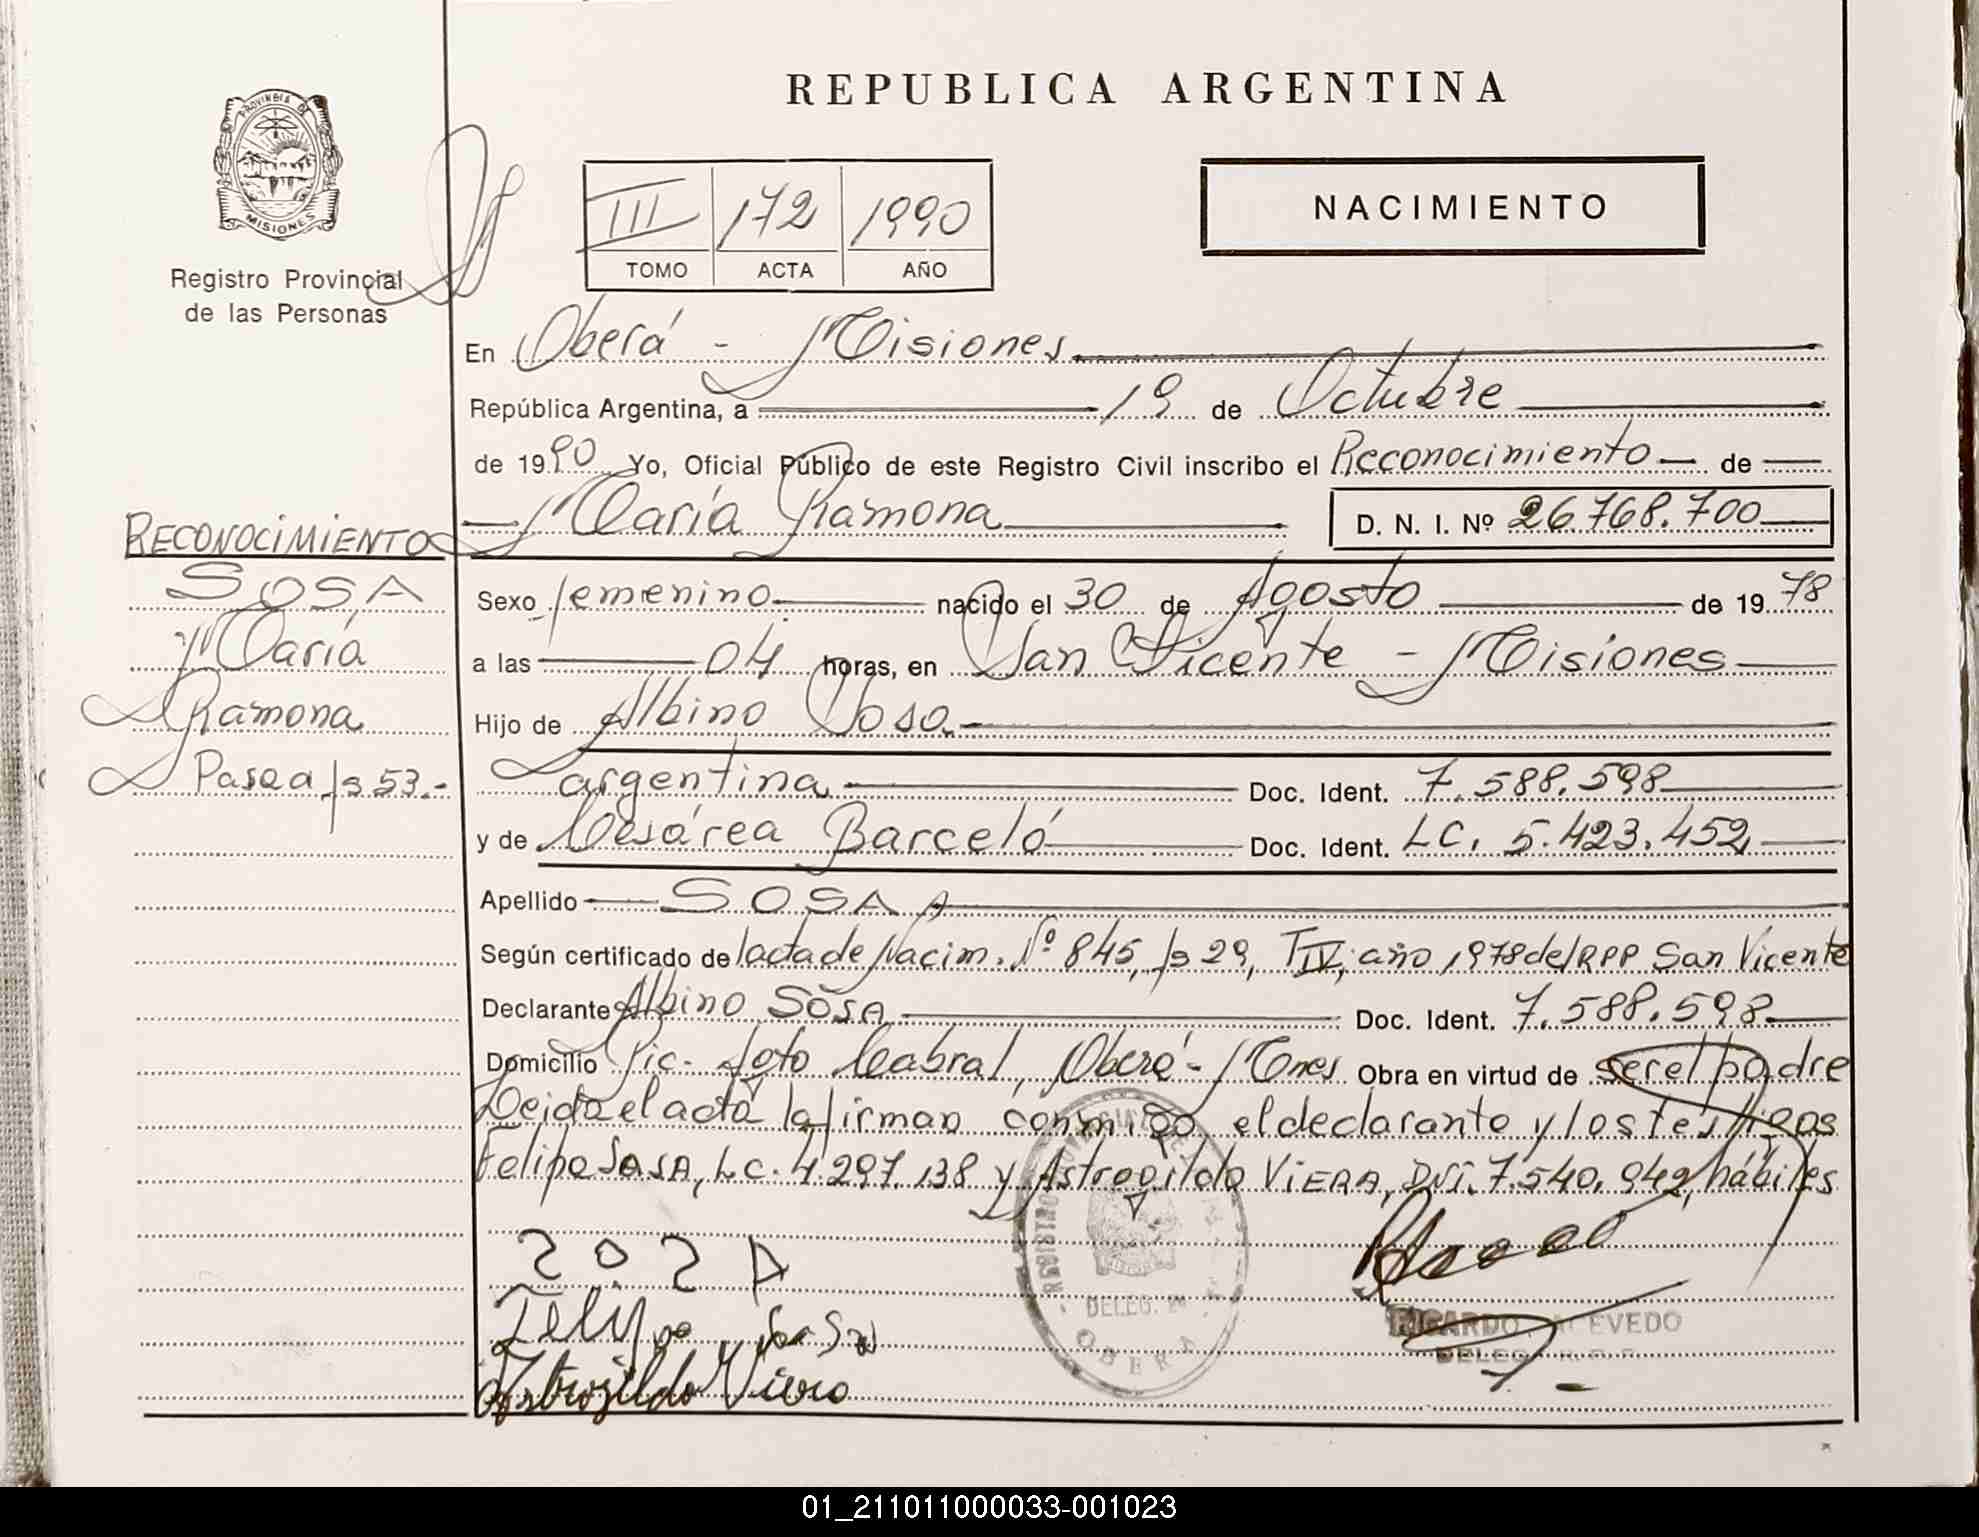 REPUBLICA ARGENTINA
PROVINCIA DE
MISIONES
Registro Provincial
de las Personas
III 172 1990
TOMO ACTA AÑO
NACIMIENTO
En Oberá - Misiones
República Argentina, a 19 de Octubre
de 1990 Yo, Oficial Público de este Registro Civil inscribo el Reconocimiento de
María Ramona D. N. I. Nº 26.768.700
RECONOCIMIENTO
SOSA
María
Ramona
Pasa a fs 53.-
Sexo femenino nacido el 30 de Agosto de 1978
a las 04 horas, en San Vicente - Misiones
Hijo de Albino Sosa
argentina Doc. Ident. 7.588.598
y de Cesárea Barceló Doc. Ident. LC. 5.423.452
Apellido SOSA
Según certificado de acta de Nacim. Nº 845, fs 29, T IV, año 1978 del RPP San Vicente
Declarante Albino SOSA Doc. Ident. 7.588.598
Domicilio Pic. Sgto Cabral, Oberá - Mnes Obra en virtud de ser el padre
Leida el acta la firman conmigo el declarante y los testigos
Felipa SOSA, LC. 4.297.138 y Astrogildo VIERA, DNI. 7.540.942, hábiles
SOSA
Astrogildo Viera
DELEG. 2ª
OBERA
RICARDO ACEVEDO
DELEG. R.P.P.
01_211011000033-001023